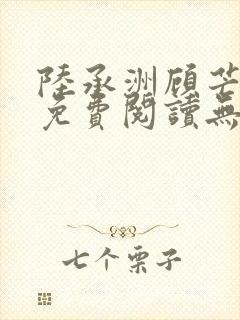 陸承洲顾芒
免費閱讀無
七个栗子